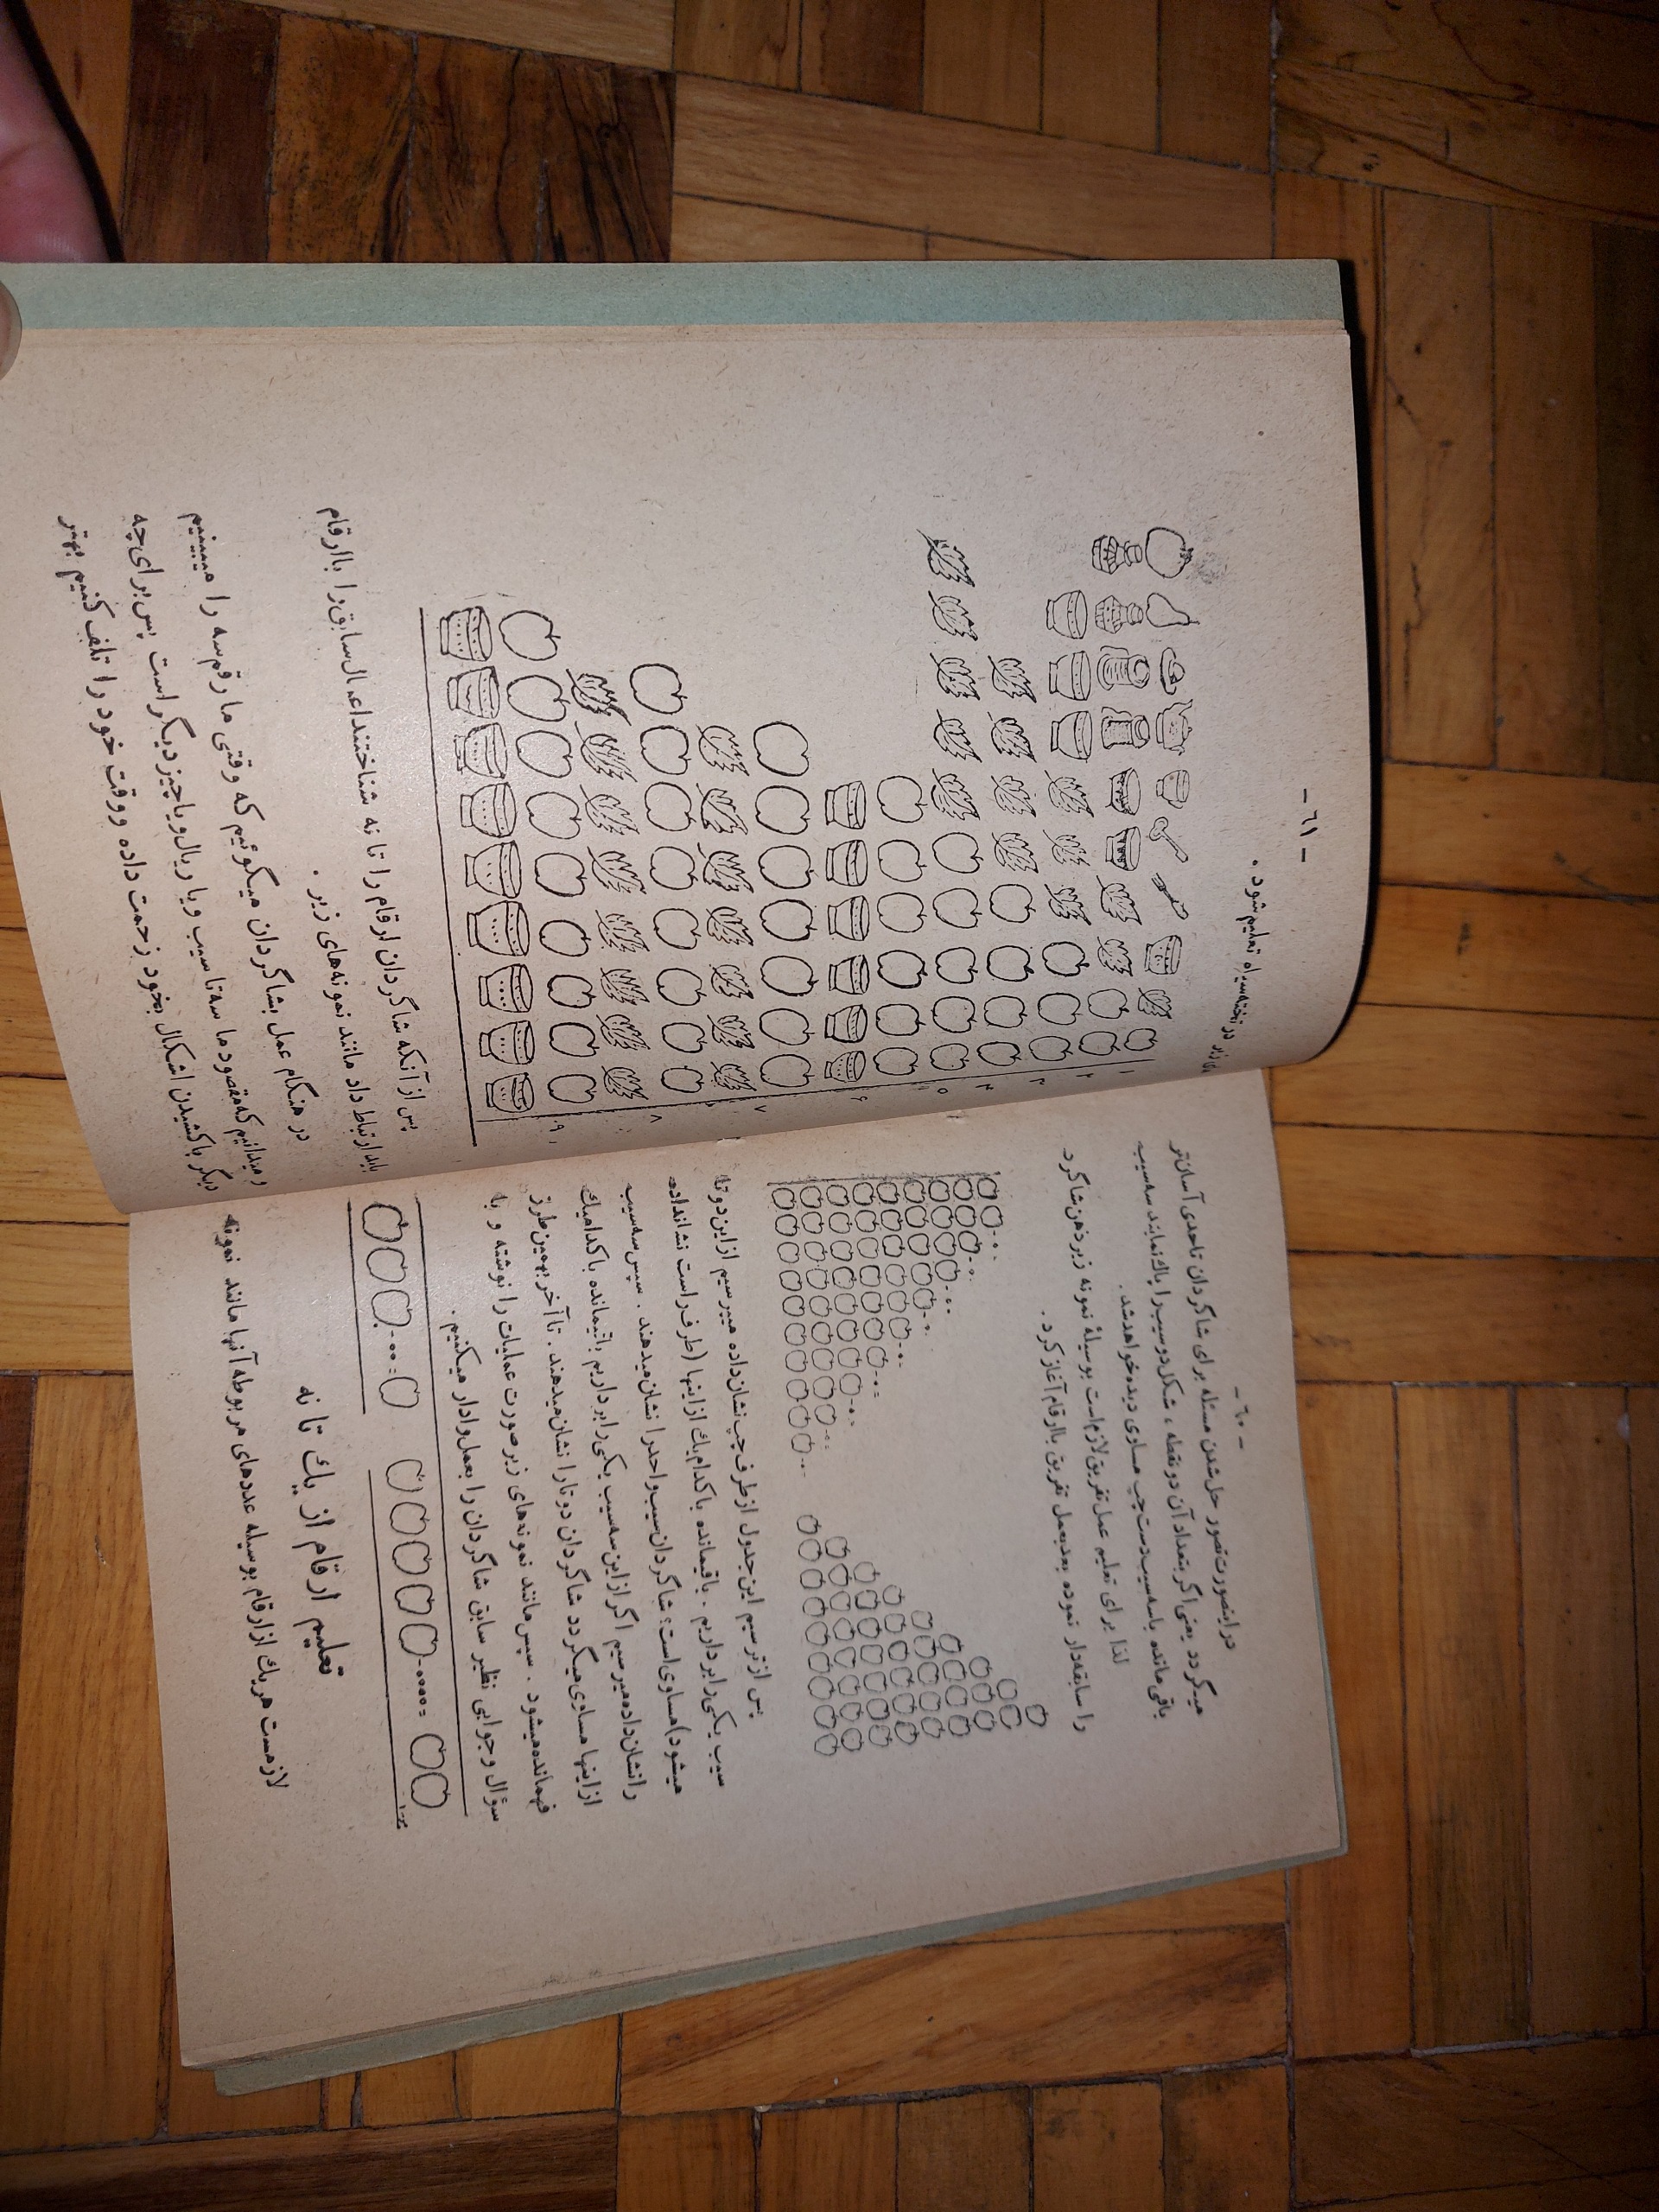 - ٦٠ -
در اینصورت تصور حل شدن مسئله برای شاگردان تا حدی آسان‌تر
میگردد یعنی اگر بتعداد آن دو نقطه ، شکل دو سیب را پاک نمایند سه سیب
باقی مانده با سه سیب دست چپ مساوی دیده خواهد شد .
لذا برای تعلیم عمل تفریق لازم است بوسیلهٔ نمونه زیر ذهن شاگرد
را سابقه‌دار نموده بعد بعمل تفریق با ارقام آغاز کرد .
پس از ترسیم این جدول از طرف چپ نشان داده میپرسیم از این دو تا
سیب یکی را برداریم . باقیمانده با کدام یک از اینها (طرف راست نشانداده
میشود) مساوی است؟ شاگردان سیب واحد را نشان میدهند . سپس سه سیب
را نشان داده میپرسیم اگر از این سه سیب یکی را برداریم باقیمانده با کدامیک
از اینها مساوی میگردد شاگردان دو تا را نشان میدهند . تا آخر بهمین طرز
فهمانده میشود . سپس مانند نمونه‌های زیر صورت عملیات را نوشته و با
سؤال وجوابی نظیر سابق شاگردان را بعمل وادار میکنیم .
تعلیم ارقام از یك تا نه
لازمست هریك از ارقام بوسیله عددهای مربوطه آنها مانند نمونه
- ٦١ -
در تخته سیاه تعلیم شود .
۱
۲
۳
۴
۵
۶
۷
۸
۹
پس از آنکه شاگردان ارقام را تا نه شناختند اعمال سابق را با ارقام
باید ارتباط داد مانند نمونه‌های زیر .
در هنگام عمل بشاگردان میگوئیم که وقتی ما رقم سه را میبینیم
و میدانیم که مقصود ما سه تا سیب ویا ریال ویا چیز دیگر است پس برای چه
دیگر با کشیدن اشکال بخود زحمت داده ووقت خود را تلف کنیم بهتر